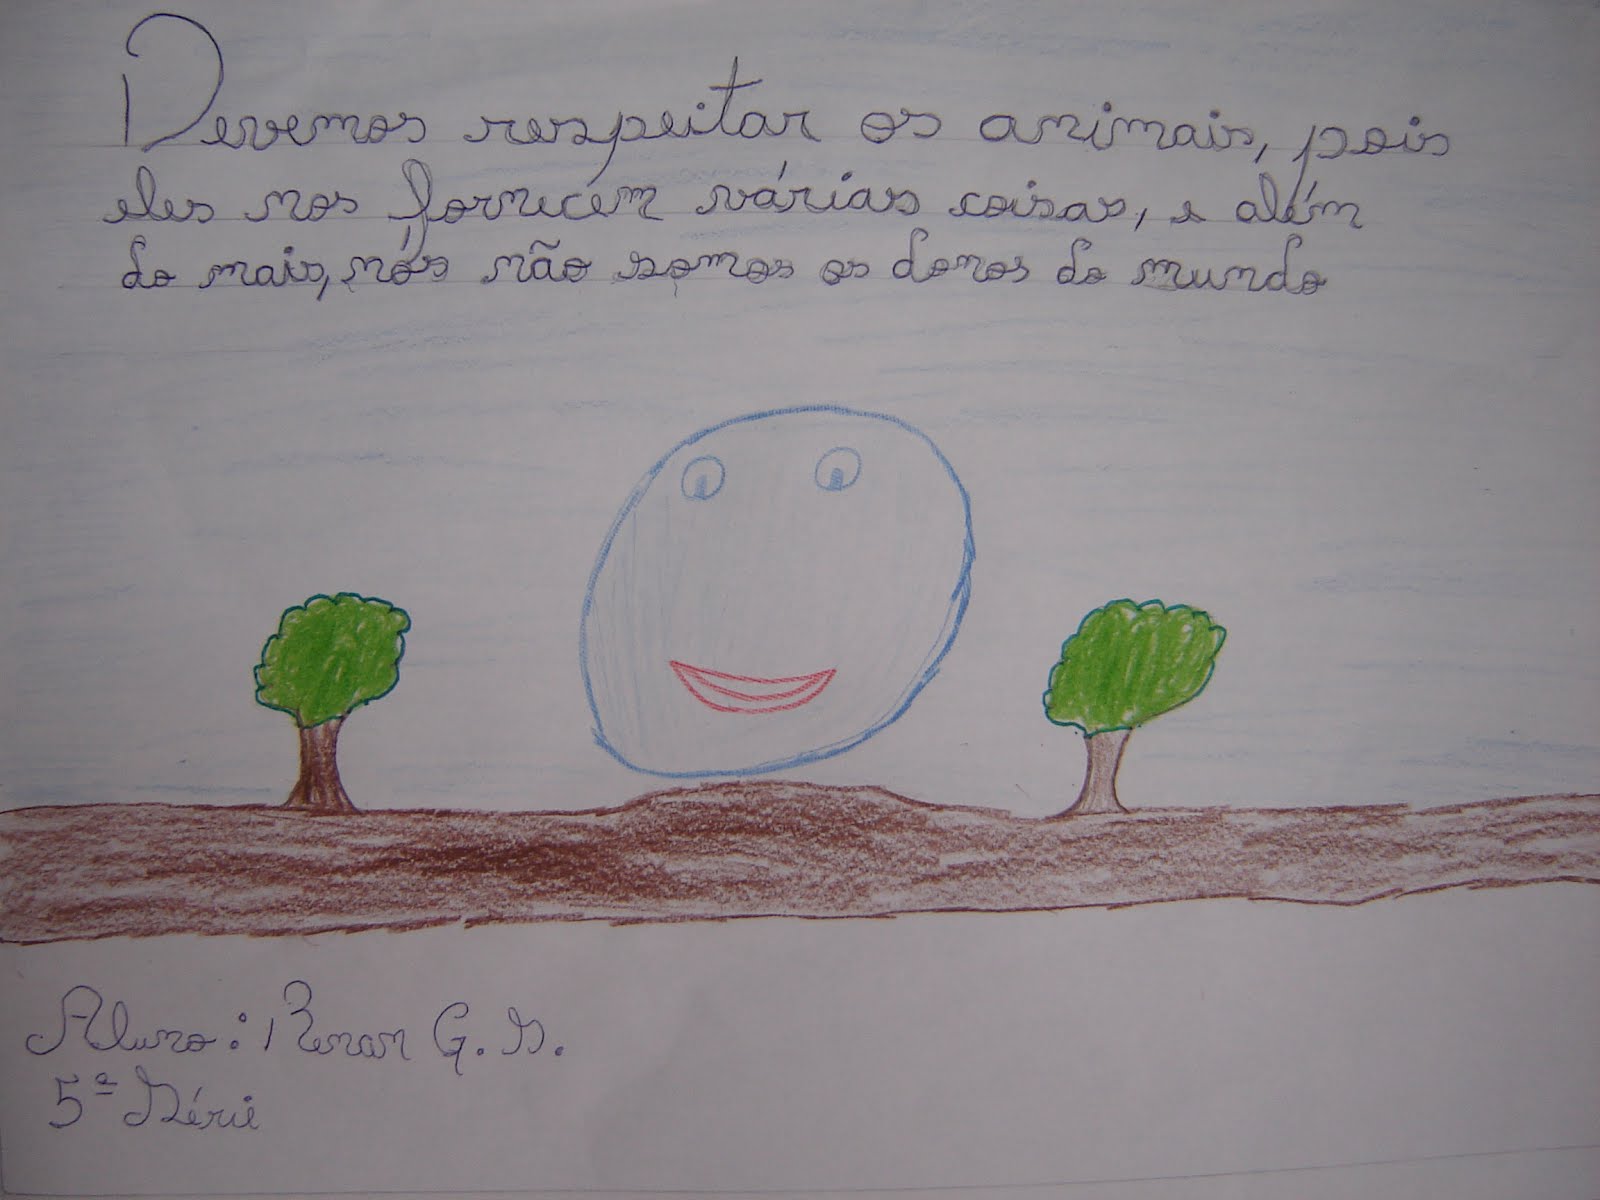 Devemos respeitar os animais, pois
eles nos fornecem várias coisas, e além
do mais, nós não somos os donos do mundo
Aluno: Renan G. S.
5ª Série